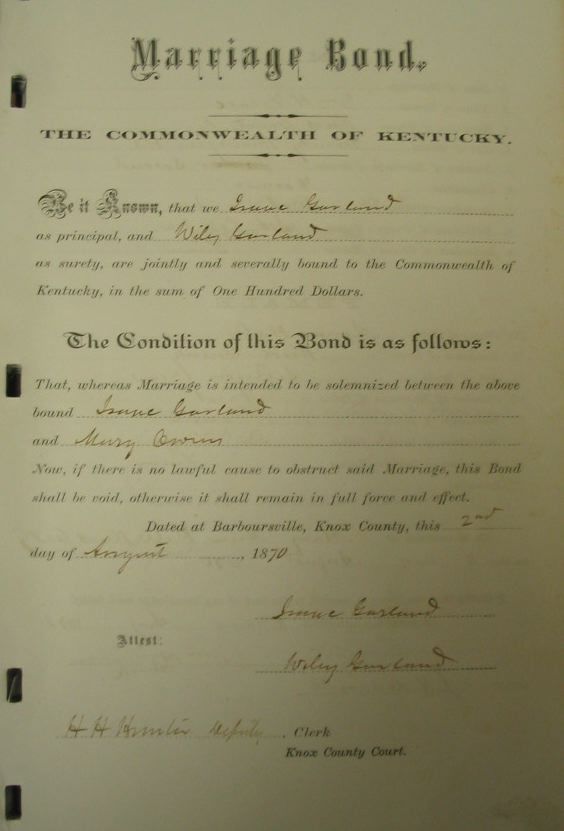 Marriage Bond.
THE COMMONWEALTH OF KENTUCKY.
Be it Known, that we Isaac Garland
as principal, and Wiley Garland
as surety, are jointly and severally bound to the Commonwealth of
Kentucky, in the sum of One Hundred Dollars.
The Condition of this Bond is as follows:
That, whereas Marriage is intended to be solemnized between the above
bound Isaac Garland
and Mary Owens
Now, if there is no lawful cause to obstruct said Marriage, this Bond
shall be void, otherwise it shall remain in full force and effect.
Dated at Barboursville, Knox County, this 2nd
day of August, 1870
Isaac Garland
Attest:
Wiley Garland
H H Hunter Deputy, Clerk
Knox County Court.